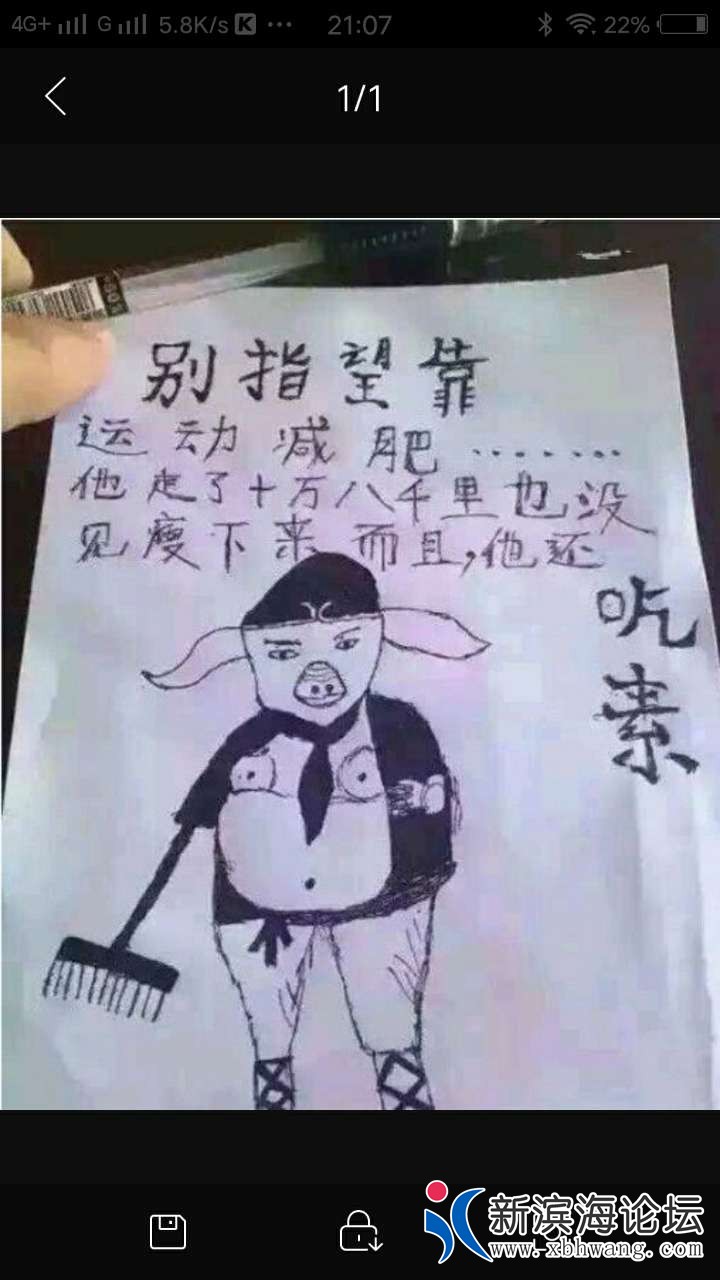 4G+ G 5.8K/s K ··· 21:07 22%
1/1
别指望靠
运动减肥·······
他走了十万八千里也没
见瘦下来而且,他还
吃素
新滨海论坛
www.xbhwang.com